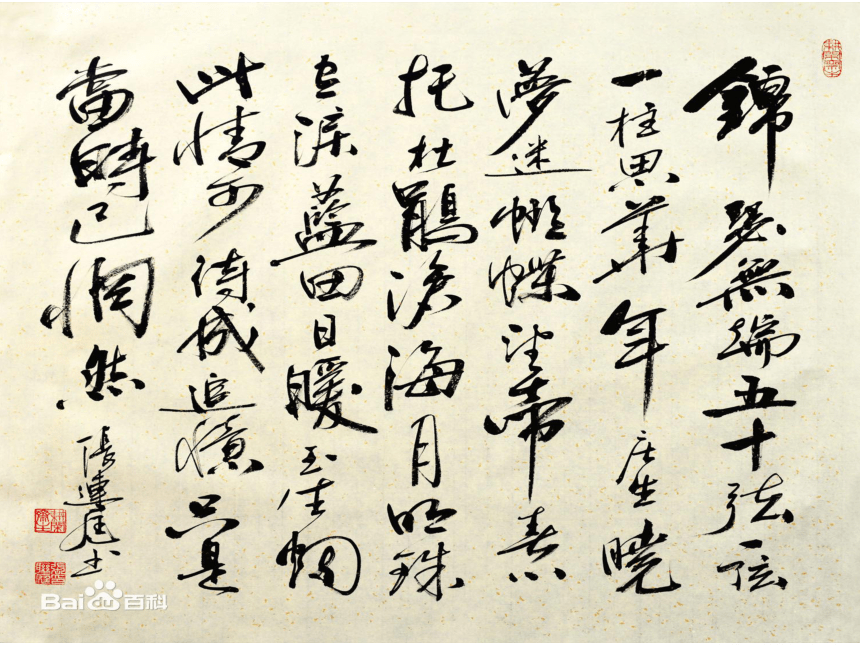 錦瑟無端五十弦一弦
一柱思華年庄生曉
夢迷蝴蝶望帝春心
托杜鵑滄海月明珠
有淚藍田日暖玉生烟
此情可待成追憶只是
當時已惘然
張連書
Bai百科